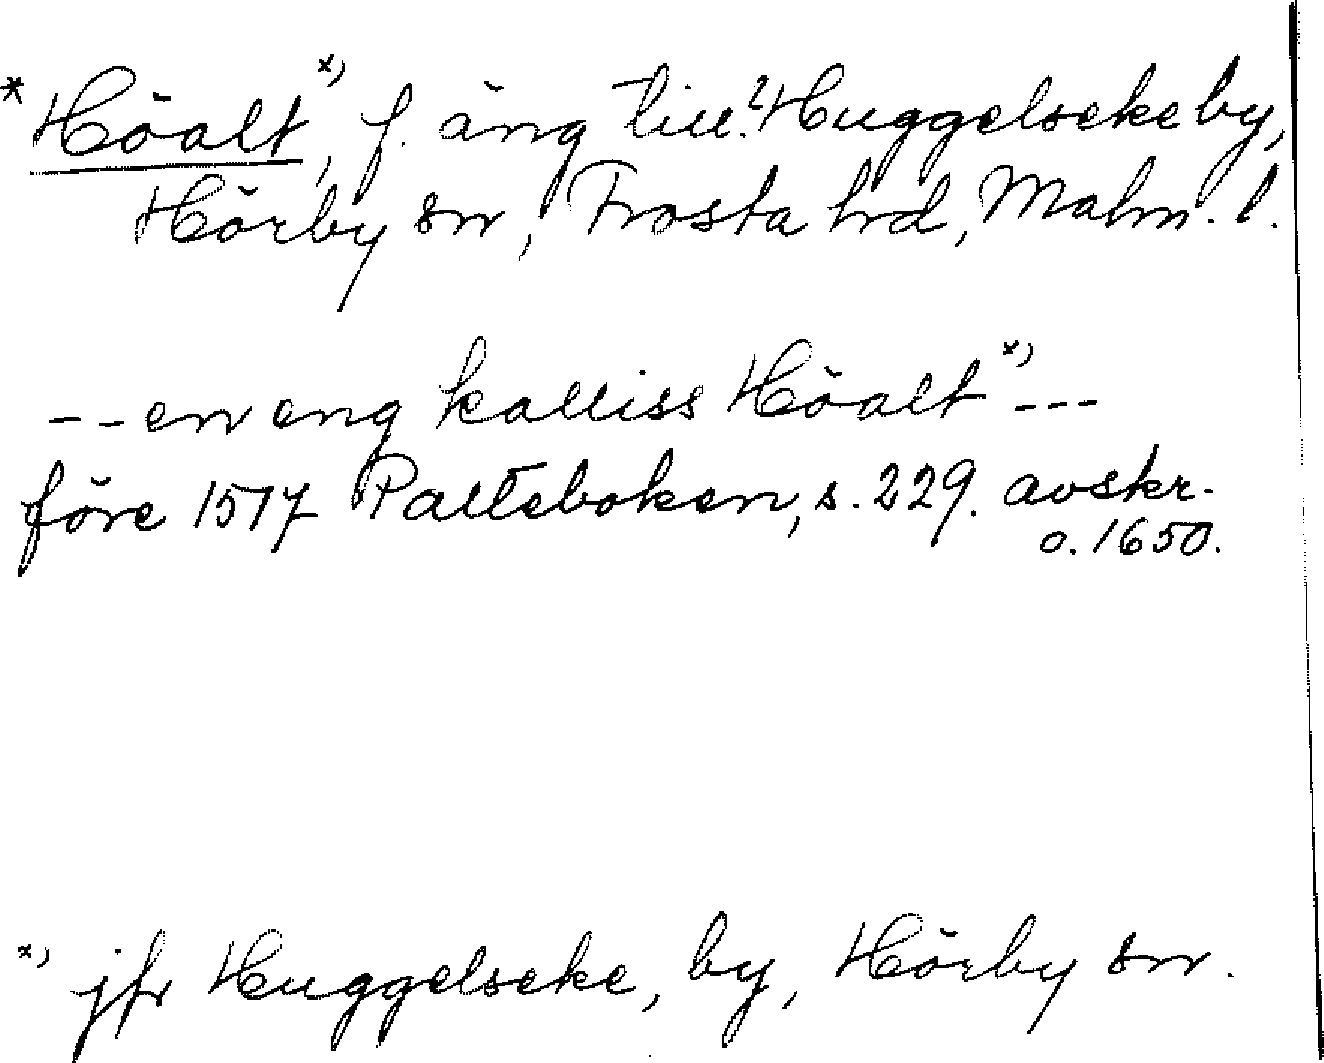 * Höalt x), f. äng till? Huggelseke by,
Hörby sn, Frosta hd, Malm. l.
-- en eng kalliss Höalt x) ---
före 1517 Palteboken, s. 229. avskr.
o. 1650.
x) jfr Huggelseke, by, Hörby sn.